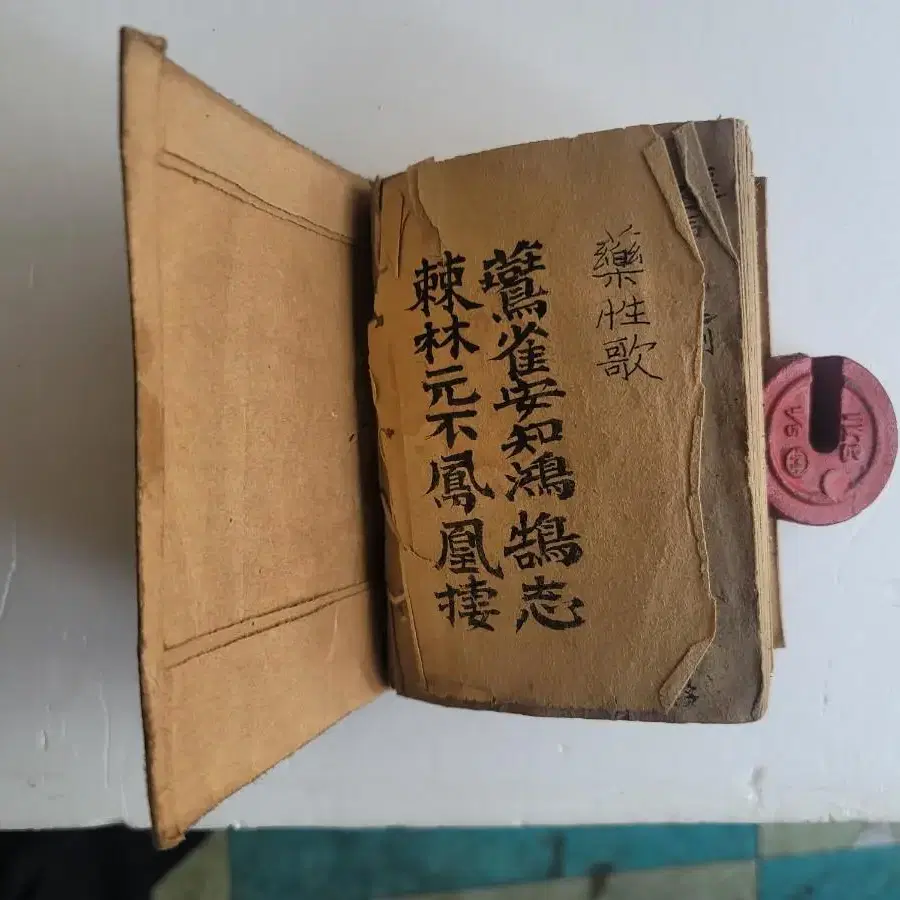 藥性歌
鷰雀安知鴻鵠志
棘林元不鳳凰捿